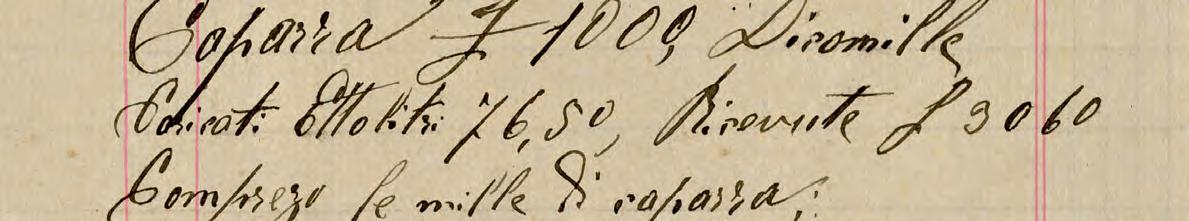 Caparra £ 1000, Dicomille
Caricati Ettolitri 76,50, Ricevute £ 3060
Compreso le mille di caparra;